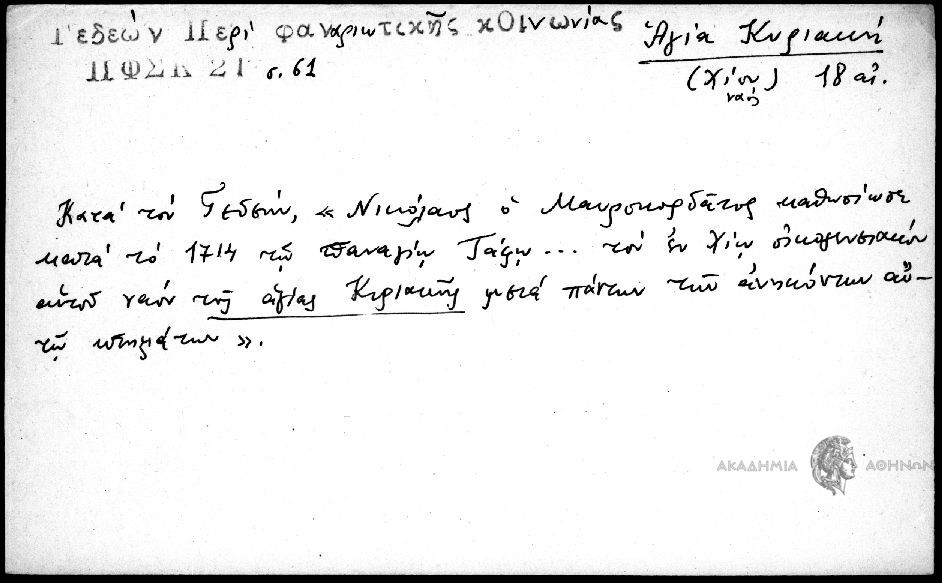 Γεδεών Περί φαναριωτικῆς κοινωνίας
ΠΦΣΚ 21 σ. 61
Ἁγία Κυριακή
(Χίου) 18 αἰ.
ναός
Κατά τόν Γεδεών, « Νικόλαος ὁ Μαυροκορδᾶτος καθωσίωσε
κατά τό 1714 τῷ Παναγίῳ Τάφῳ ... τόν ἐν Χίῳ οἰκογενειακόν
αὐτοῦ ναόν τῆς ἁγίας Κυριακῆς μετά πάντων τῶν ἀνηκόντων αὐ-
τῷ κτημάτων ».
ΑΚΑΔΗΜΙΑ ΑΘΗΝΩΝ